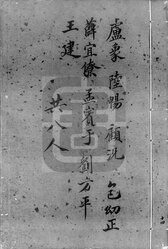 盧象 陸暢 顧況 包幼正
薛宜僚 孟賓于 劉方平
王建
共八人